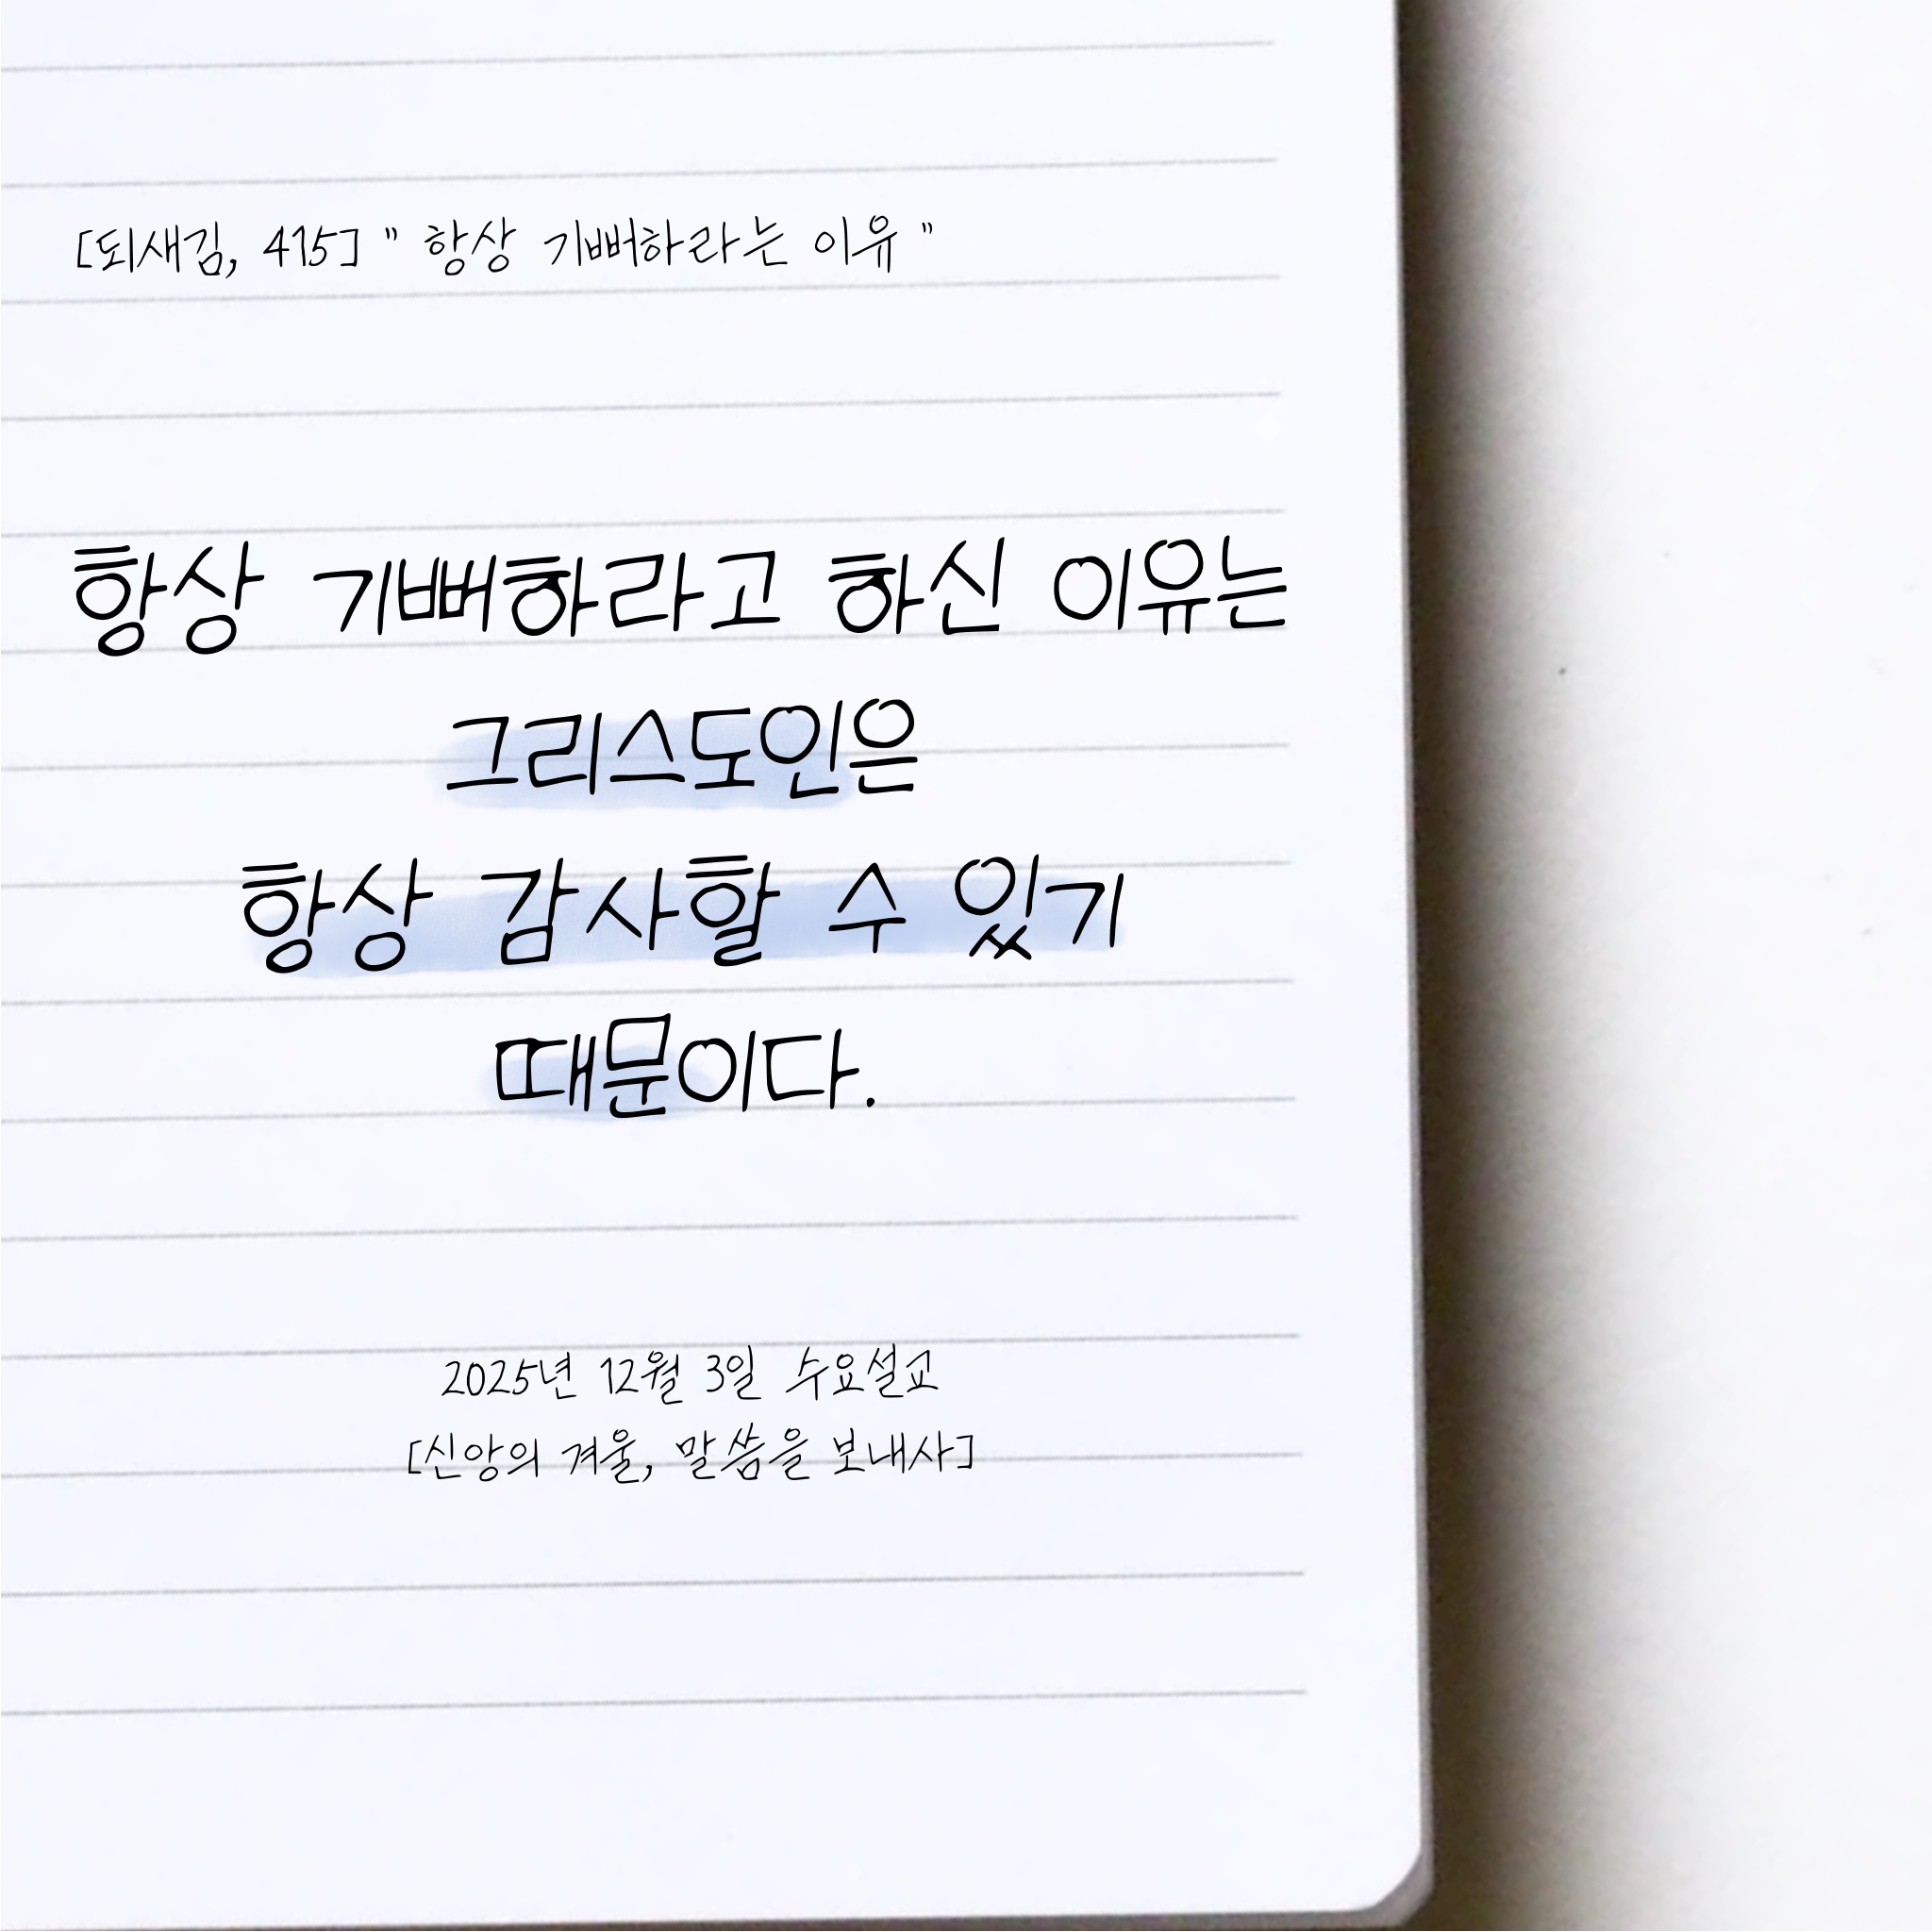 [되새김, 415] " 항상 기뻐하라는 이유 "
항상 기뻐하라고 하신 이유는
그리스도인은
항상 감사할 수 있기
때문이다.
2025년 12월 3일 수요설교
[신앙의 겨울, 말씀을 보내사]